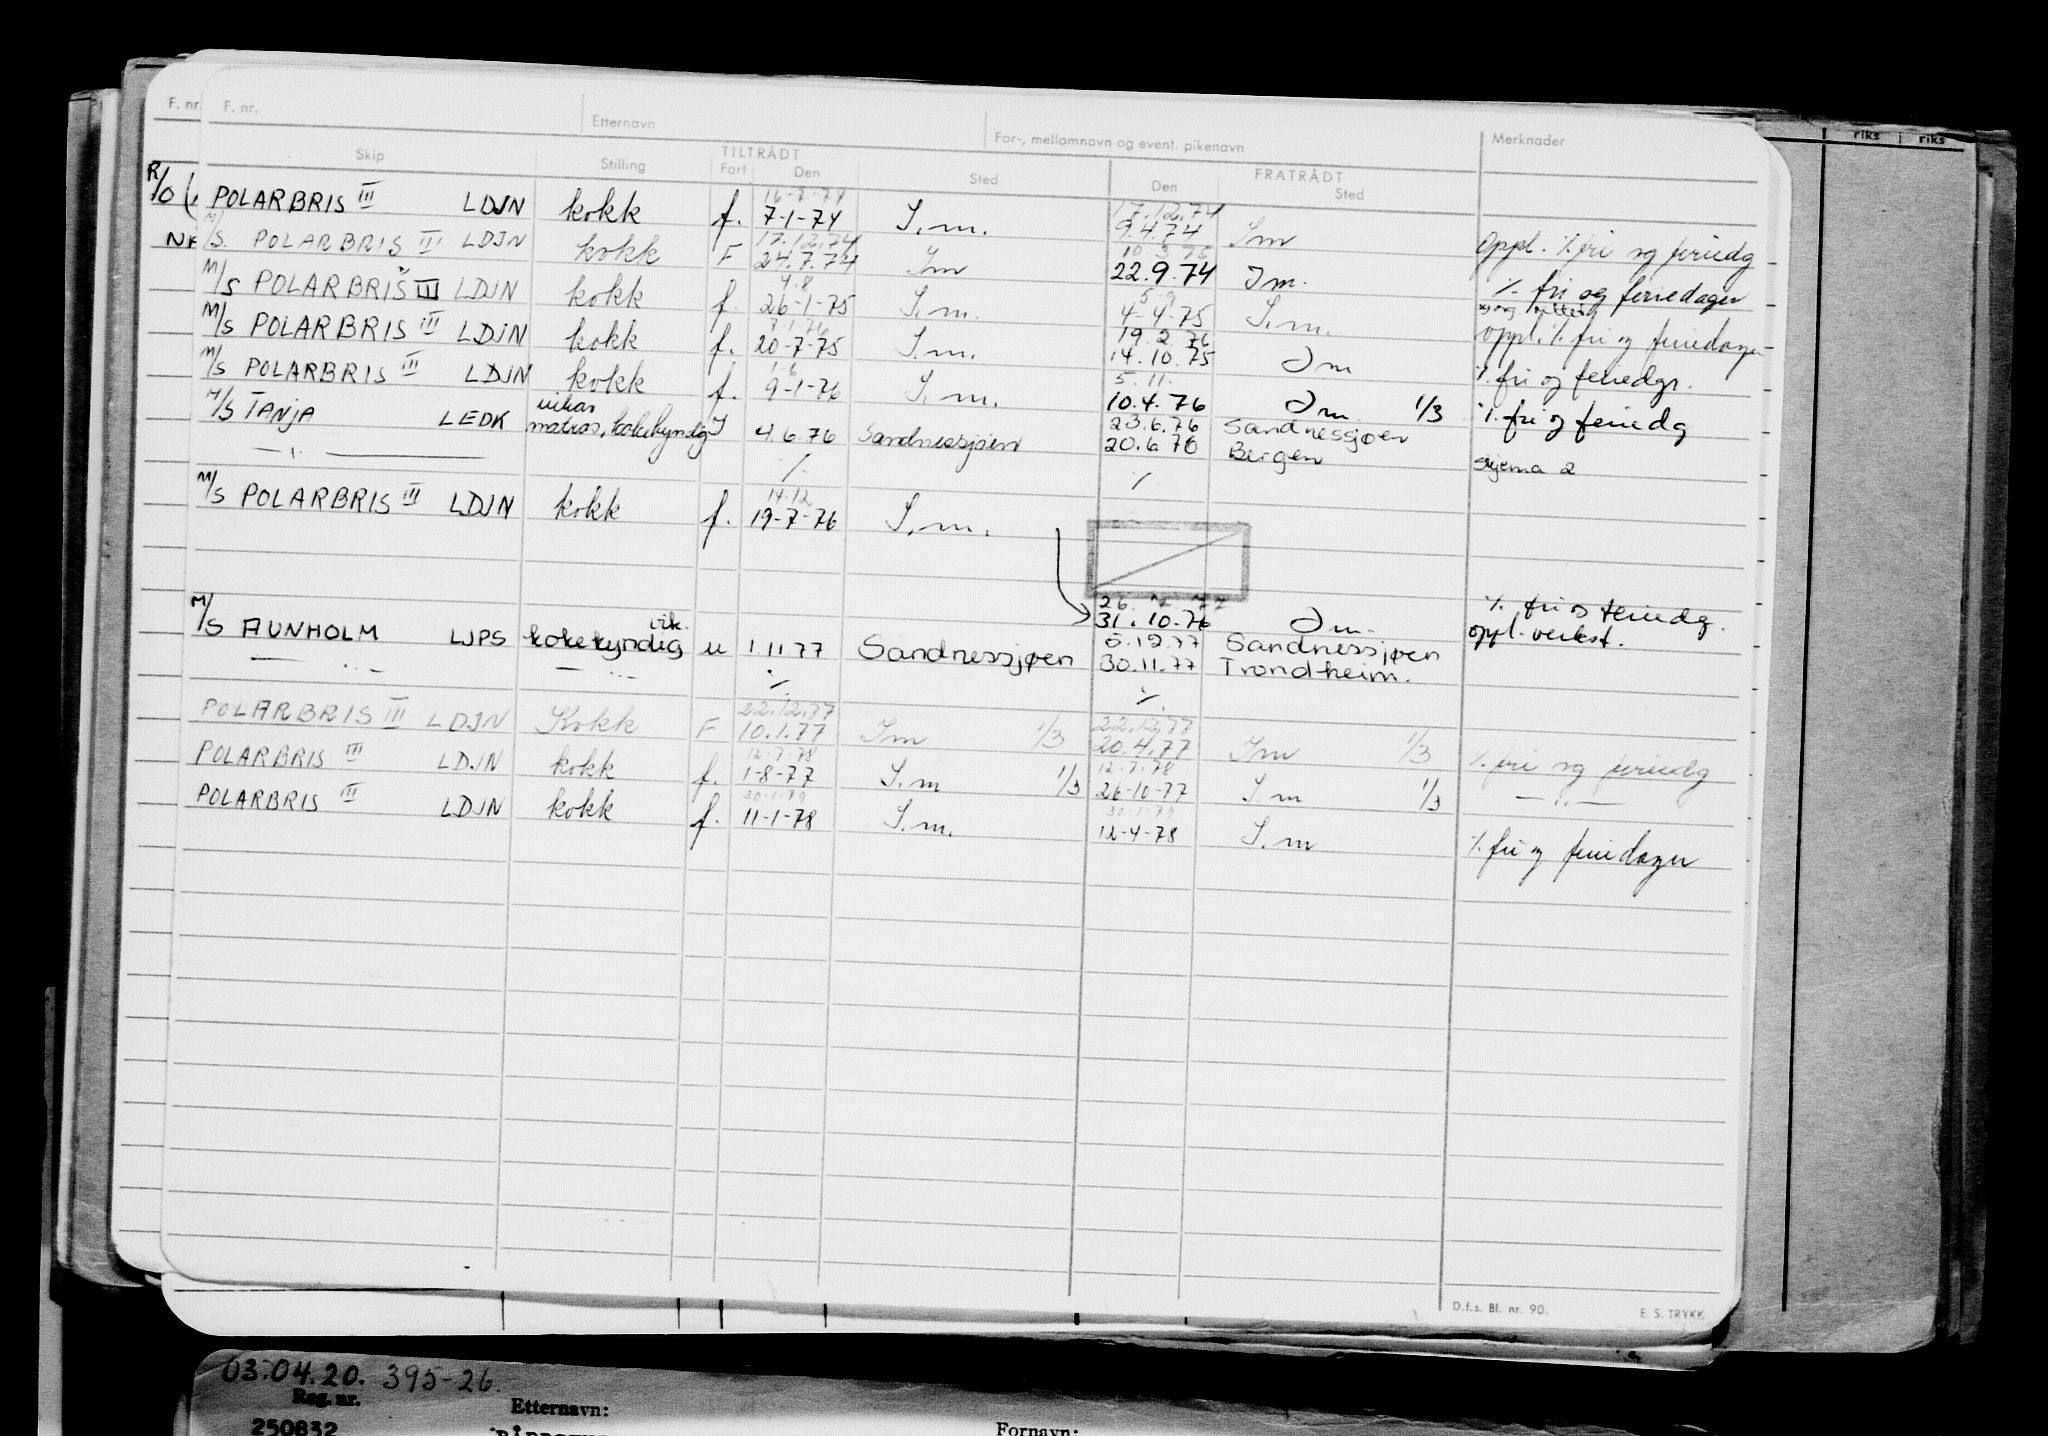 F. nr. F. nr. Etternavn For-, mellomnavn og event. pikenavn Merknader riks riks
Skip Stilling TILTRÅDT FRATRÅDT
Fart Den Sted Den Sted
16-7-74 17.12.74
R/O POLARBRIS III LDJN kokk f. 7-1-74 I.m. 9.4.74 Im Oppl. ./. fri og feriedg
17.12.74 10.3.75
M/S. POLARBRIS III LDJN kokk F 24.7.74 Im 22.9.74 Im. ./. fri og feriedager
4.8
M/S POLARBRIS III LDJN kokk f. 26-1-75 I.m. 4-4-75 I.m. oppl. ./. fri og feriedager
7.1.76 19.2.76
M/S POLARBRIS III LDJN kokk f. 20-7-75 I.m. 14.10.75 Im ./. fri og feriedgr.
1-6 5.11.
M/S POLARBRIS III LDJN kokk f. 9-1-76 I.m. 10.4.76 Im 1/3 ./. fri og feriedg
vikar 23.6.76 Sandnessjøen
M/S TANJA LEDK matros, kokekyndig I 4.6.76 Sandnessjøen 20.6.76 Bergen skjema 2
— " — ./. ./.
14.12
M/S POLARBRIS III LDJN kokk f. 19-7-76 I.m.
26. 7. 77
31.10.76 Im. ./. fri og feriedg.
oppl. verkst.
vik. 5.12.77 Sandnessjøen
M/S AUNHOLM LJPS kokekyndig u 1.11.77 Sandnessjøen 30.11.77 Trondheim.
— " — — " — ./. ./.
22.12.77 22.12.77
POLARBRIS III LDJN Kokk F 10.1.77 Im 1/3 20.4.77 Im 1/3 ./. fri og feriedg
12-7-78 12.7.78
POLARBRIS III LDJN kokk f. 1-8-77 I.m 1/3 26-10-77 I m 1/3 — " —
30-1-79 30-1-79
POLARBRIS III LDJN kokk f. 11-1-78 I.m. 12-4-78 I.m ./. fri og feriedager
D.f.s. Bl. nr. 90. E. S. TRYKK
03.04.20. 395-26.
Reg. nr. Etternavn: Fornavn:
250832